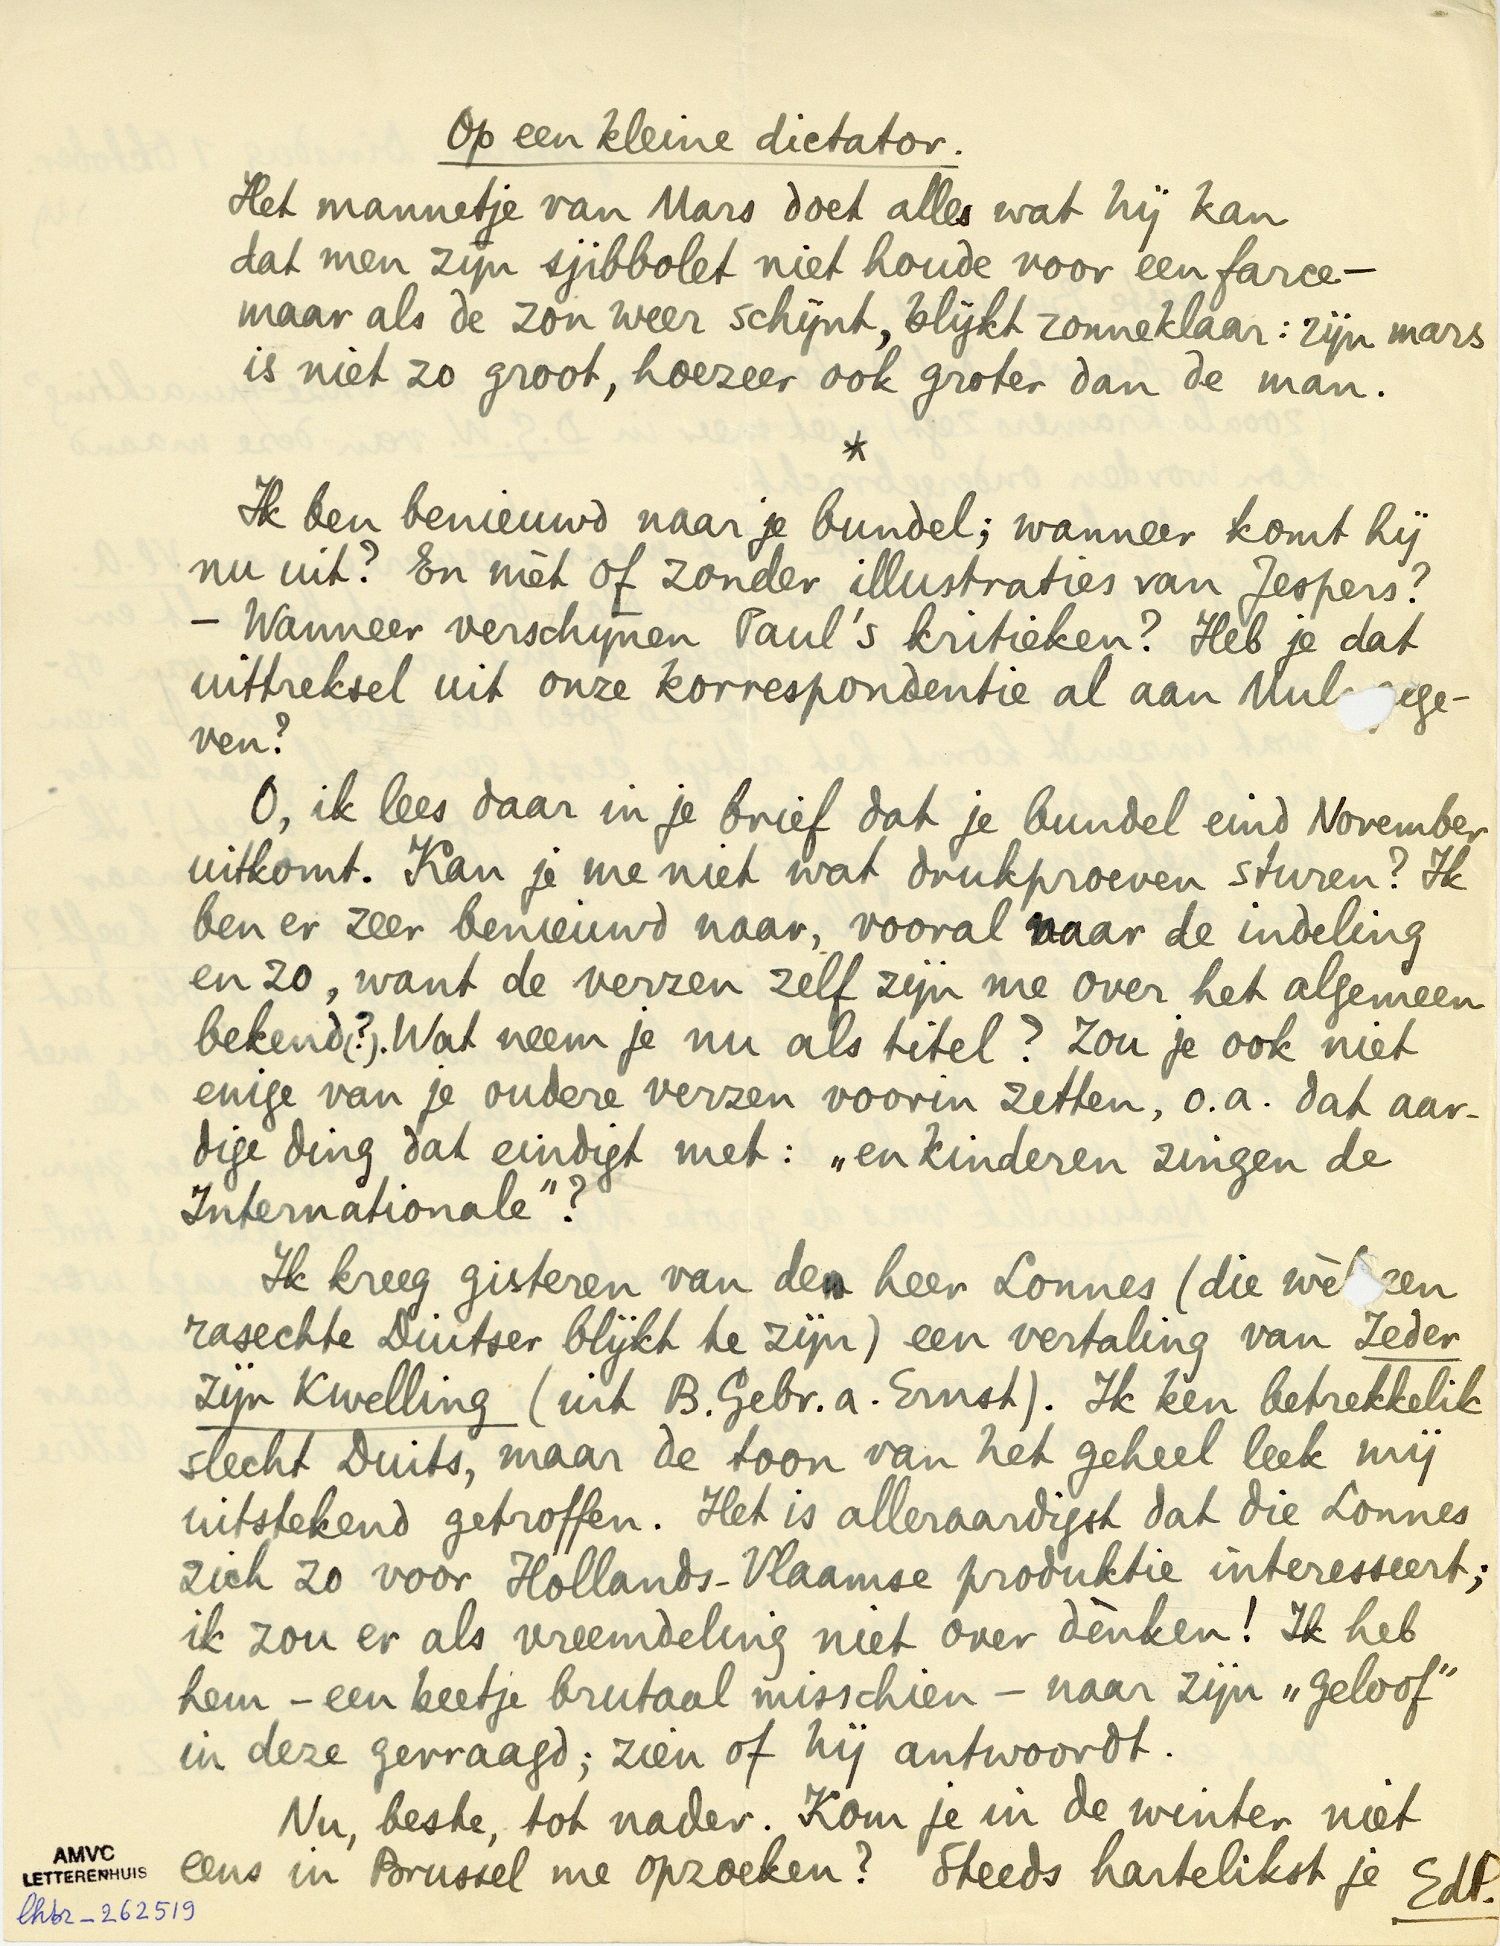 Op een kleine dictator.
Het mannetje van Mars doet alles wat hij kan
dat men zijn sjibbolet niet houde voor een farce—
maar als de zon weer schijnt, blijkt zonneklaar: zijn mars
is niet zo groot, hoezeer ook groter dan de man.
*
Ik ben benieuwd naar je bundel; wanneer komt hij
nu uit? En mèt of zonder illustraties van Jespers?
— Wanneer verschijnen Paul's kritieken? Heb je dat
uittreksel uit onze korrespondentie al aan gege-
ven?
O, ik lees daar in je brief dat je bundel eind November
uitkomt. Kan je me niet wat drukproeven sturen? Ik
ben er zeer benieuwd naar, vooral naar de indeling
en zo, want de verzen zelf zijn me over het algemeen
bekend(?). Wat neem je nu als titel? Zou je ook niet
enige van je oudere verzen voorin zetten, o.a. dat aar-
dige ding dat eindigt met: „en kinderen zingen de
Internationale"?
Ik kreeg gisteren van den heer Lonnes (die wèl een
rasechte Duitser blijkt te zijn) een vertaling van Ieder
zijn Kwelling (uit B. Gebr. a. Ernst). Ik ken betrekkelik
slecht Duits, maar de toon van het geheel leek mij
uitstekend getroffen. Het is alleraardigst dat die Lonnes
zich zo voor Hollands-Vlaamse produktie interesseert;
ik zou er als vreemdeling niet over dènken! Ik heb
hem – een beetje brutaal misschien – naar zijn „geloof"
in deze gevraagd; zien of hij antwoordt.
Nu, beste, tot nader. Kom je in de winter niet
eens in Brussel me opzoeken? Steeds hartelikst je EdP.
AMVC
LETTERENHUIS
lhbr_262519